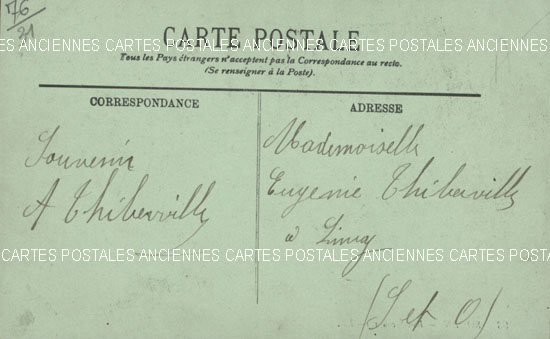 76
21
CARTE POSTALE
ANCIENNES CARTES POSTALES ANCIENNES CARTES POSTALES ANCIENNES
Tous les Pays étrangers n'acceptent pas la Correspondance au recto.
(Se renseigner à la Poste).
CORRESPONDANCE
Souvenir
A Thiberville
ADRESSE
Mademoiselle
Eugenie Thiberville
a Limay
CARTES POSTALES ANCIENNES CARTES POSTALES ANCIENNES CARTES POSTALES
(S et O)